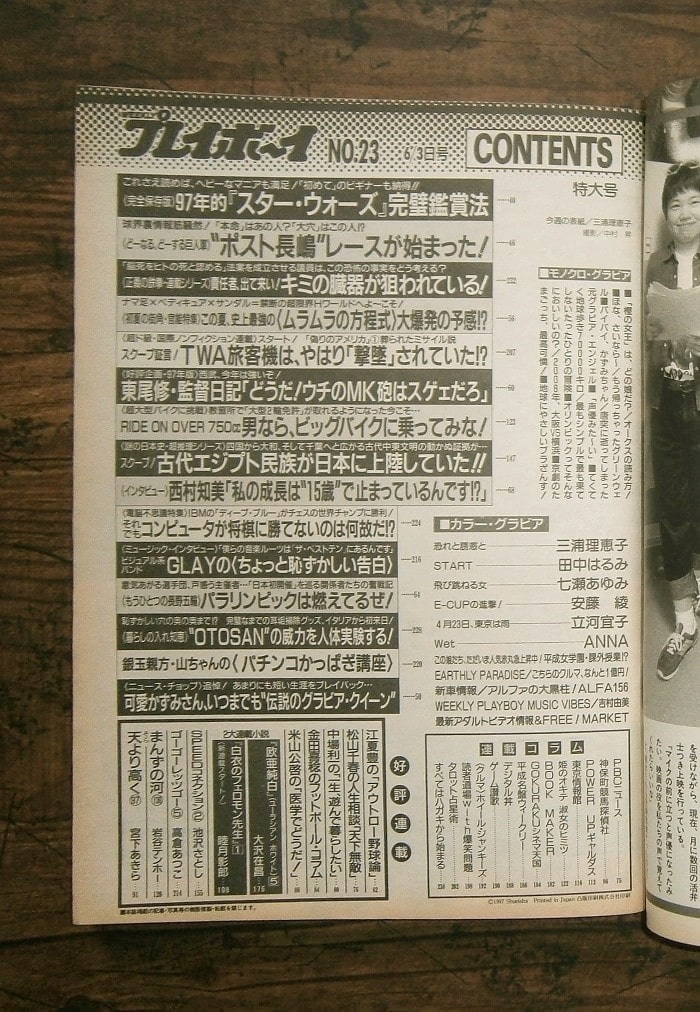 プレイボーイ NO.23 6/3日号 CONTENTS
これさえ読めば、ヘビーなマニアも満足!「初めて」のビギナーも納得!!
〈完全保存版〉97年的『スター・ウォーズ』完璧鑑賞法 40
球界裏情報筋騒然!「本命」はあの人?「大穴」はこの人!?
〈どーなる、どーする巨人軍〉“ポスト長嶋”レースが始まった! 46
「脳死をヒトの死と認める」法案を成立させる議員は、この恐怖の事実をどう考える?
〈正義の鉄拳・連載シリーズ〉責任者、出て来い!キミの臓器が狙われている! 232
ナマ足×ペディキュア×サンダル=禁断の超限界Hワールドへよ〜こそ!
〈初夏の街角・官能特集〉この夏、史上最強の〈ムラムラの方程式〉大爆発の予感!? 56
〈超ド級・国際ノンフィクション連載〉スタート!「偽りのアメリカ」①葬られたミサイル説
スクープ証言!TWA旅客機は、やはり「撃墜」されていた!? 207
〈好評企画・97年版〉西武、今年は強いぞ!
東尾修・監督日記「どうだ!ウチのMK砲はスゲェだろ」 60
〈超大型バイクに挑戦〉教習所で「大型2輪免許」が取れるようになった今こそ…
RIDE ON OVER 750cc 男なら、ビッグバイクに乗ってみな! 123
〈謎の日本史・超推理シリーズ〉四国から大和、そして千葉へと広がる古代中東文明の動かぬ証拠が…
スクープ!古代エジプト民族が日本に上陸していた!! 147
〈インタビュー〉西村知美「私の成長は“15歳”で止まっているんです!?」 68
〈電脳不思議特集〉IBMの「ディープ・ブルー」がチェスの世界チャンプに勝利!
それでもコンピュータが将棋に勝てないのは何故だ!? 224
〈ミュージック・インタビュー〉「僕らの音楽ルーツは『ザ・ベストテン』にあるんです」
ビジュアル系バンド GLAYの〈ちょっと恥ずかしい告白〉 216
意気あがる選手団、戸惑う主催者…「日本初開催」を巡る関係者たちの奮戦記
〈もうひとつの長野五輪〉パラリンピックは燃えてるぜ! 64
恥ずかしい穴の奥の奥まで!? 完璧なまでの耳垢掃除グッズ、イタリアから初来日!
〈暮らしの入れ知恵〉“OTOSAN”の威力を人体実験する! 228
銀玉親方・山ちゃんの〈パチンコかっぱぎ講座〉 220
〈ニュース・チョップ〉追悼! あまりにも短い生涯をプレイバック…
可愛かずみさん、いつまでも“伝説のグラビア・クイーン” 50
特大号
今週の表紙/三浦理恵子
撮影/中村 昇
■モノクロ・グラビア
■「樫の女王」は、どの娘だ?/オークスの読み方!
■ほな、さいなら〜/もう帰っちゃったグリーンウェル
■バイバイ、かずみちゃん/唐突に逝ってしまった元グラビア・エンジェル
■「声優みた〜い」
■てくてく地球歩き70000キロ/最もシンプルで最も果てしないたったひとりの冒険
■オリンピックってそんなにおいしいの?/2008年、大阪VS横浜
■京劇のたまごっち、最高可憐!
■地球にやさしいプラざんす!
■カラー・グラビア
恐れと誘惑と 三浦理恵子
START 田中はるみ
飛び跳ねる女 七瀬あゆみ
E-CUPの進撃! 安藤 綾
4月23日、東京は雨 立河宜子
Wet ANNA
この娘たち、ただいま人気赤丸急上昇中!/平成女学園・課外授業!?
EARTHLY PARADISE/こちらのクルマ、なんと1億円!
新車情報/アルファの大黒柱/ALFA156
WEEKLY PLAYBOY MUSIC VIBES/吉村由美
最新アダルトビデオ情報&FREE/MARKET
連載コラム
PBニュース 75
神保町競馬探偵社 86
POWER UPギャルダス 112
東京情報館
姫のオキテ 淑女のヒミツ
BOOK MAKER
GOKURAKUシネマ天国
平成名盤ウィークリー
デジタル丼
ゲーム讃歌
〈クルマ〉ホイールジャンキーズ
読者道場with爆笑問題
タロット占星術
すべてはハガキから始まる
好評連載
江夏豊の「アウトロー野球論」 82
松山千春の人生相談「天下無敵」 76
中場利一の「一生、遊んで暮らしたい」 84
金田喜稔のフットボール・コラム 80
米山公啓の「医学でどうだ!」 88
2大連載小説
『欧亜純白』〈ユーラシアン ホワイト〉⑤ 大沢在昌 176
〈新連載スタート!〉『白衣のフェロモン先生』① 睦月影郎 108
SPEEDコネクション② 池沢さとし 155
ゴーゴーレッツゴー⑤ 高倉あつこ 214
まんずの河 岩谷テンホー 126
天より高く(97) 宮下あきら 91
■本誌掲載の記事・写真等の無断複写・転載を禁じます。
©1997 Shueisha Printed in Japan 凸版印刷株式会社印刷
を受けながら、現在、月に数回の活弁士つき上映を行っている。
「マイクの前に立つと声優になったみ